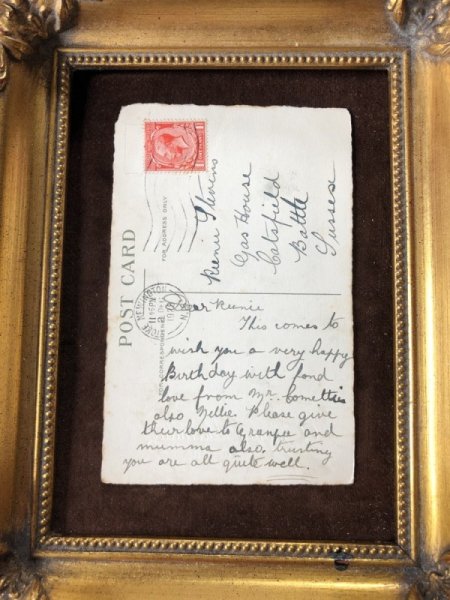 POST CARD
FOR ADDRESS ONLY
FOR CORRESPONDENCE
11.45 PM
Stevens
Gas House
Catsfield
Battle
Sussex
Dear
This comes to
wish you a very happy
Birthday with fond
love from Mr.
also Nellie. Please give
their love to Granpa and
mumma also. trusting
you are all quite well.